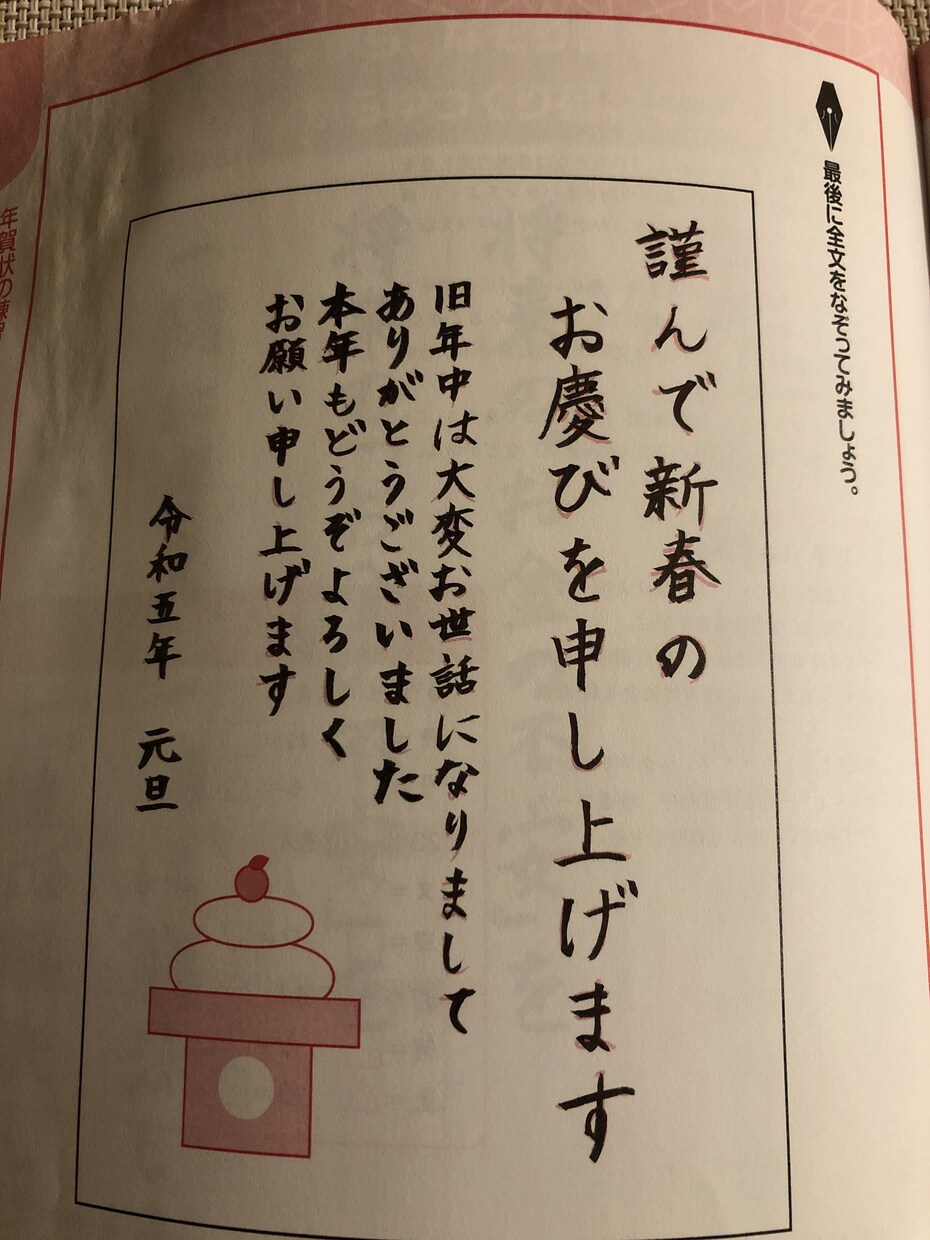 最後に全文をなぞってみましょう。
謹んで新春の
お慶びを申し上げます
旧年中は大変お世話になりまして
ありがとうございました
本年もどうぞよろしく
お願い申し上げます
令和五年 元旦
年賀状の練習